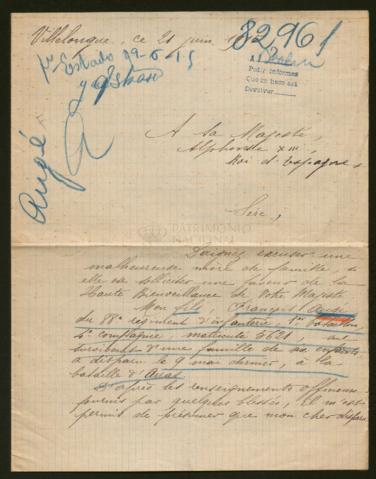 Villelongue, ce 21 juin 1915
82961
A. I.
Pedir informes
Que se hace así
Devolver
Pr Estado 29-6-15
y
Augé
A Sa Majesté,
Alphonse XIII,
Roi d'Espagne,
PATRIMONIO NACIONAL
Sire,
Daignez excuser une
malheureuse mère de famille, si
elle va solliciter une faveur de la
Haute Bienveillance de Votre Majesté.
Mon fils, François Augé
du régiment d'infanterie, 1er bataillon,
4e compagnie, matricule
survivant d'une famille de six enfants
a disparu le 9 mai dernier, à la
bataille d'Arras.
D'après les renseignements officieux
fournis par quelques blessés, il m'est
permis de présumer que mon cher disparu